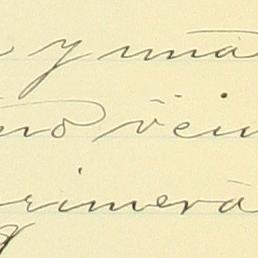 y una
vein
rimera